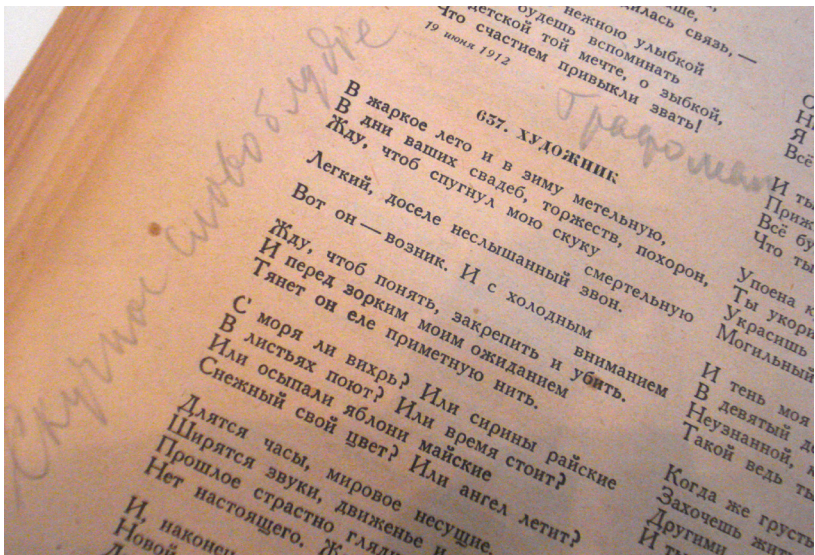 нежною улыбкой
будешь вспоминать
детской той мечте, о зыбкой,
Что счастием привыкли звать!
19 июня 1912
Графоман
657. ХУДОЖНИК
В жаркое лето и в зиму метельную,
В дни ваших свадеб, торжеств, похорон,
Жду, чтоб спугнул мою скуку смертельную
Легкий, доселе неслышанный звон.
Вот он — возник. И с холодным вниманием
Жду, чтоб понять, закрепить и убить.
И перед зорким моим ожиданием
Тянет он еле приметную нить.
С моря ли вихрь? Или сирины райские
В листьях поют? Или время стоит?
Или осыпали яблони майские
Снежный свой цвет? Или ангел летит?
Длятся часы, мировое несущие.
Ширятся звуки, движенье и
Прошлое страстно
Нет настоящего.
И, наконец
Новой
Скучное словоблудіе
И ты
Всё
Что ты
Упоена
Ты
Украсишь
Могильный
И тень моя
В девятый
Неузнанной,
Такой ведь ты
Когда же грусть
Захочешь
Другими